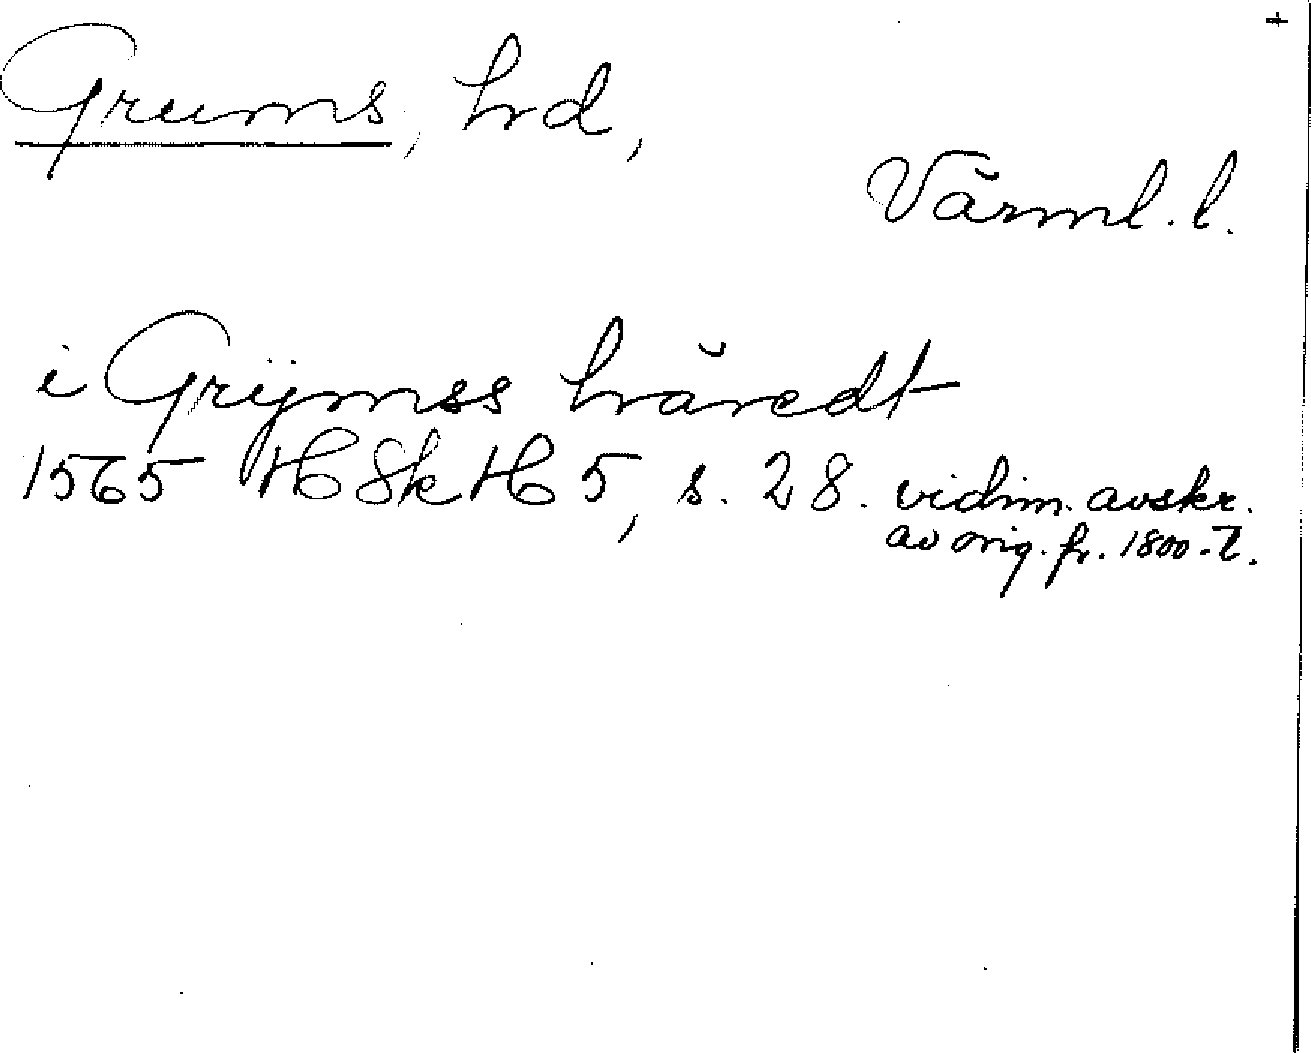 +
Grums, hrd,
Värml. l.
i Grijmss häredt
1565 HSkH 5, s. 28. vidim. avskr.
av orig. fr. 1800-t.